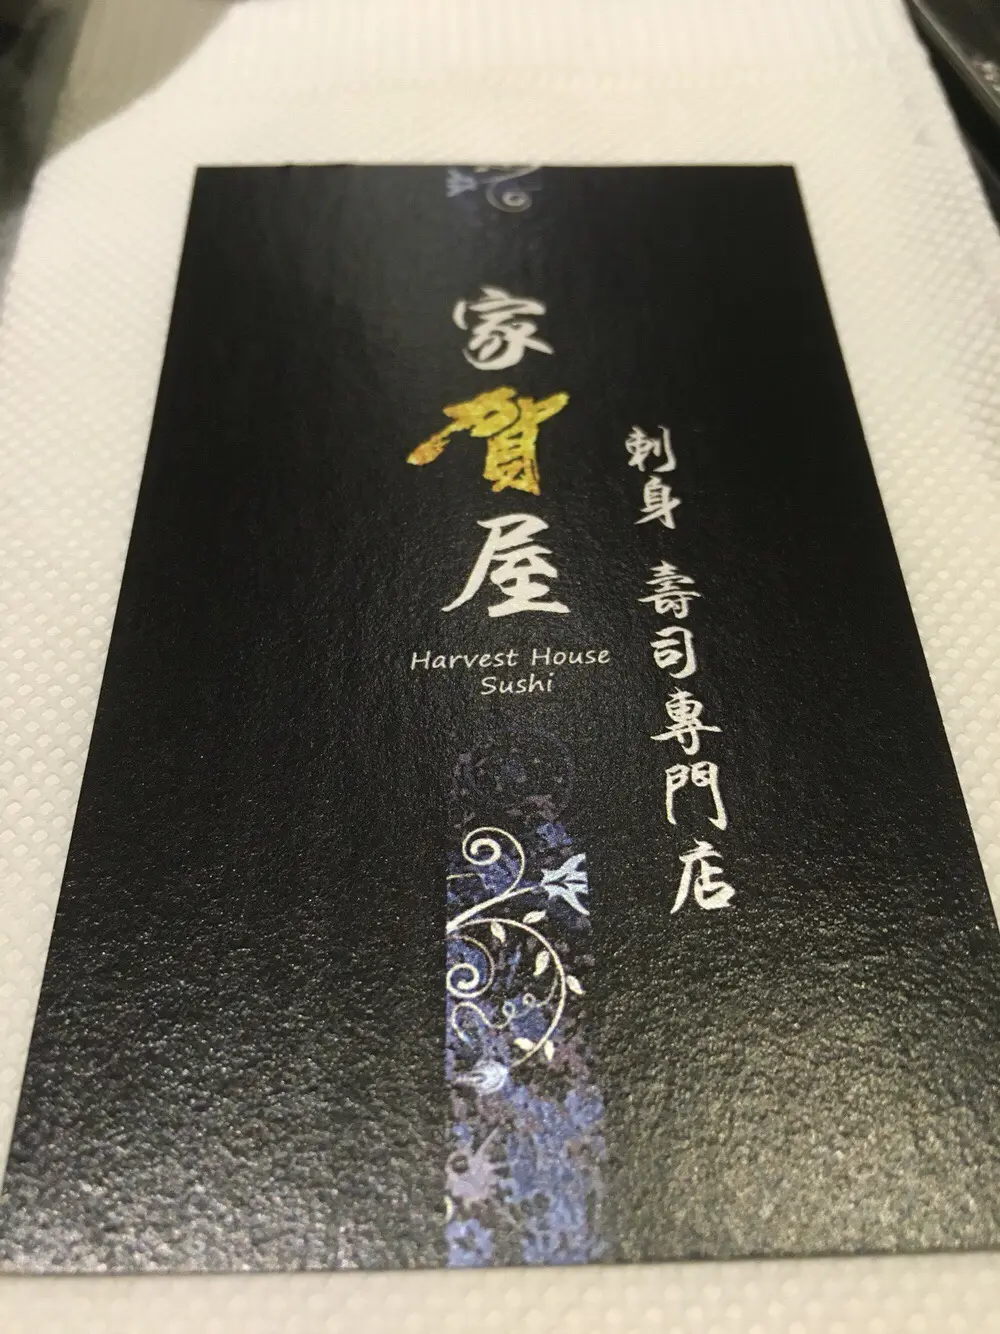 家賀屋
刺身 壽司專門店
Harvest House
Sushi